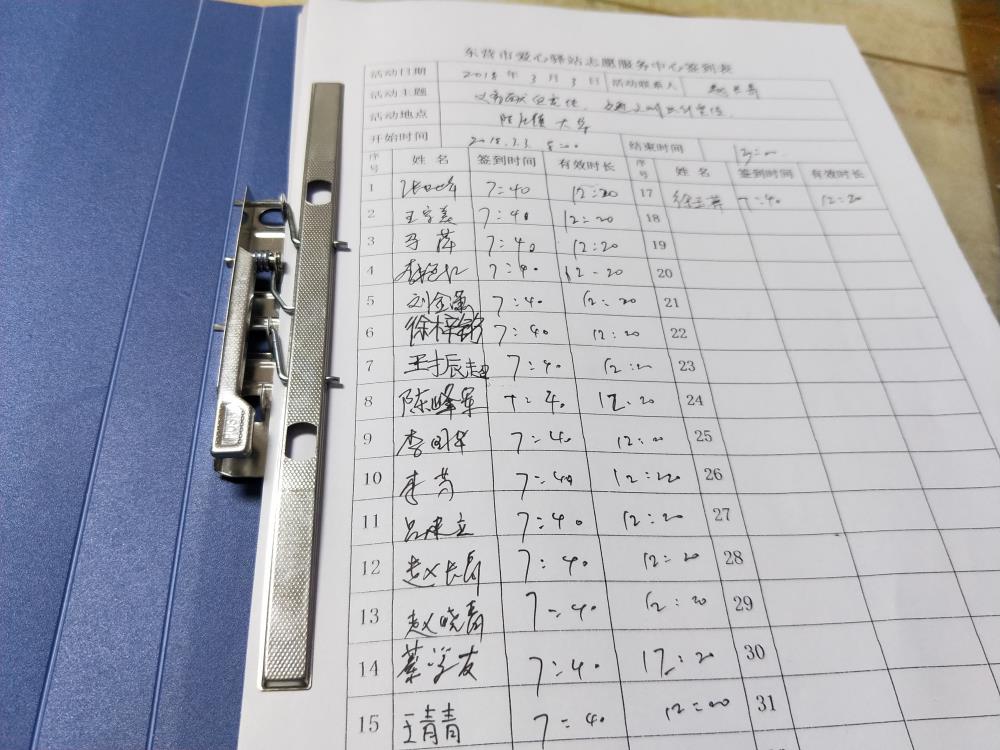 东营市爱心驿站志愿服务中心签到表
活动日期 2018年3月3日 活动联系人
活动主题
活动地点 陈庄镇大华
开始时间 2018.3.3. 8:00 结束时间
序号 姓名 签到时间 有效时长 序号 姓名 签到时间 有效时长
1 7:40 12:20 17 7:40 12:20
2 王守美 7:40 12:20 18
3 马萍 7:40 12:20 19
4 7:40 12:20 20
5 刘金 7:40 12:20 21
6 徐梓 7:40 12:20 22
7 王振超 7:40 12:20 23
8 陈峰军 7:40 12:20 24
9 李明华 7:40 12:20 25
10 李芳 7:40 12:20 26
11 吕建立 7:40 12:20 27
12 赵长 7:40 12:20 28
13 赵晓青 7:40 12:20 29
14 蔡学友 7:40 12:20 30
15 王青青 7:40 12:20 31
PUSH